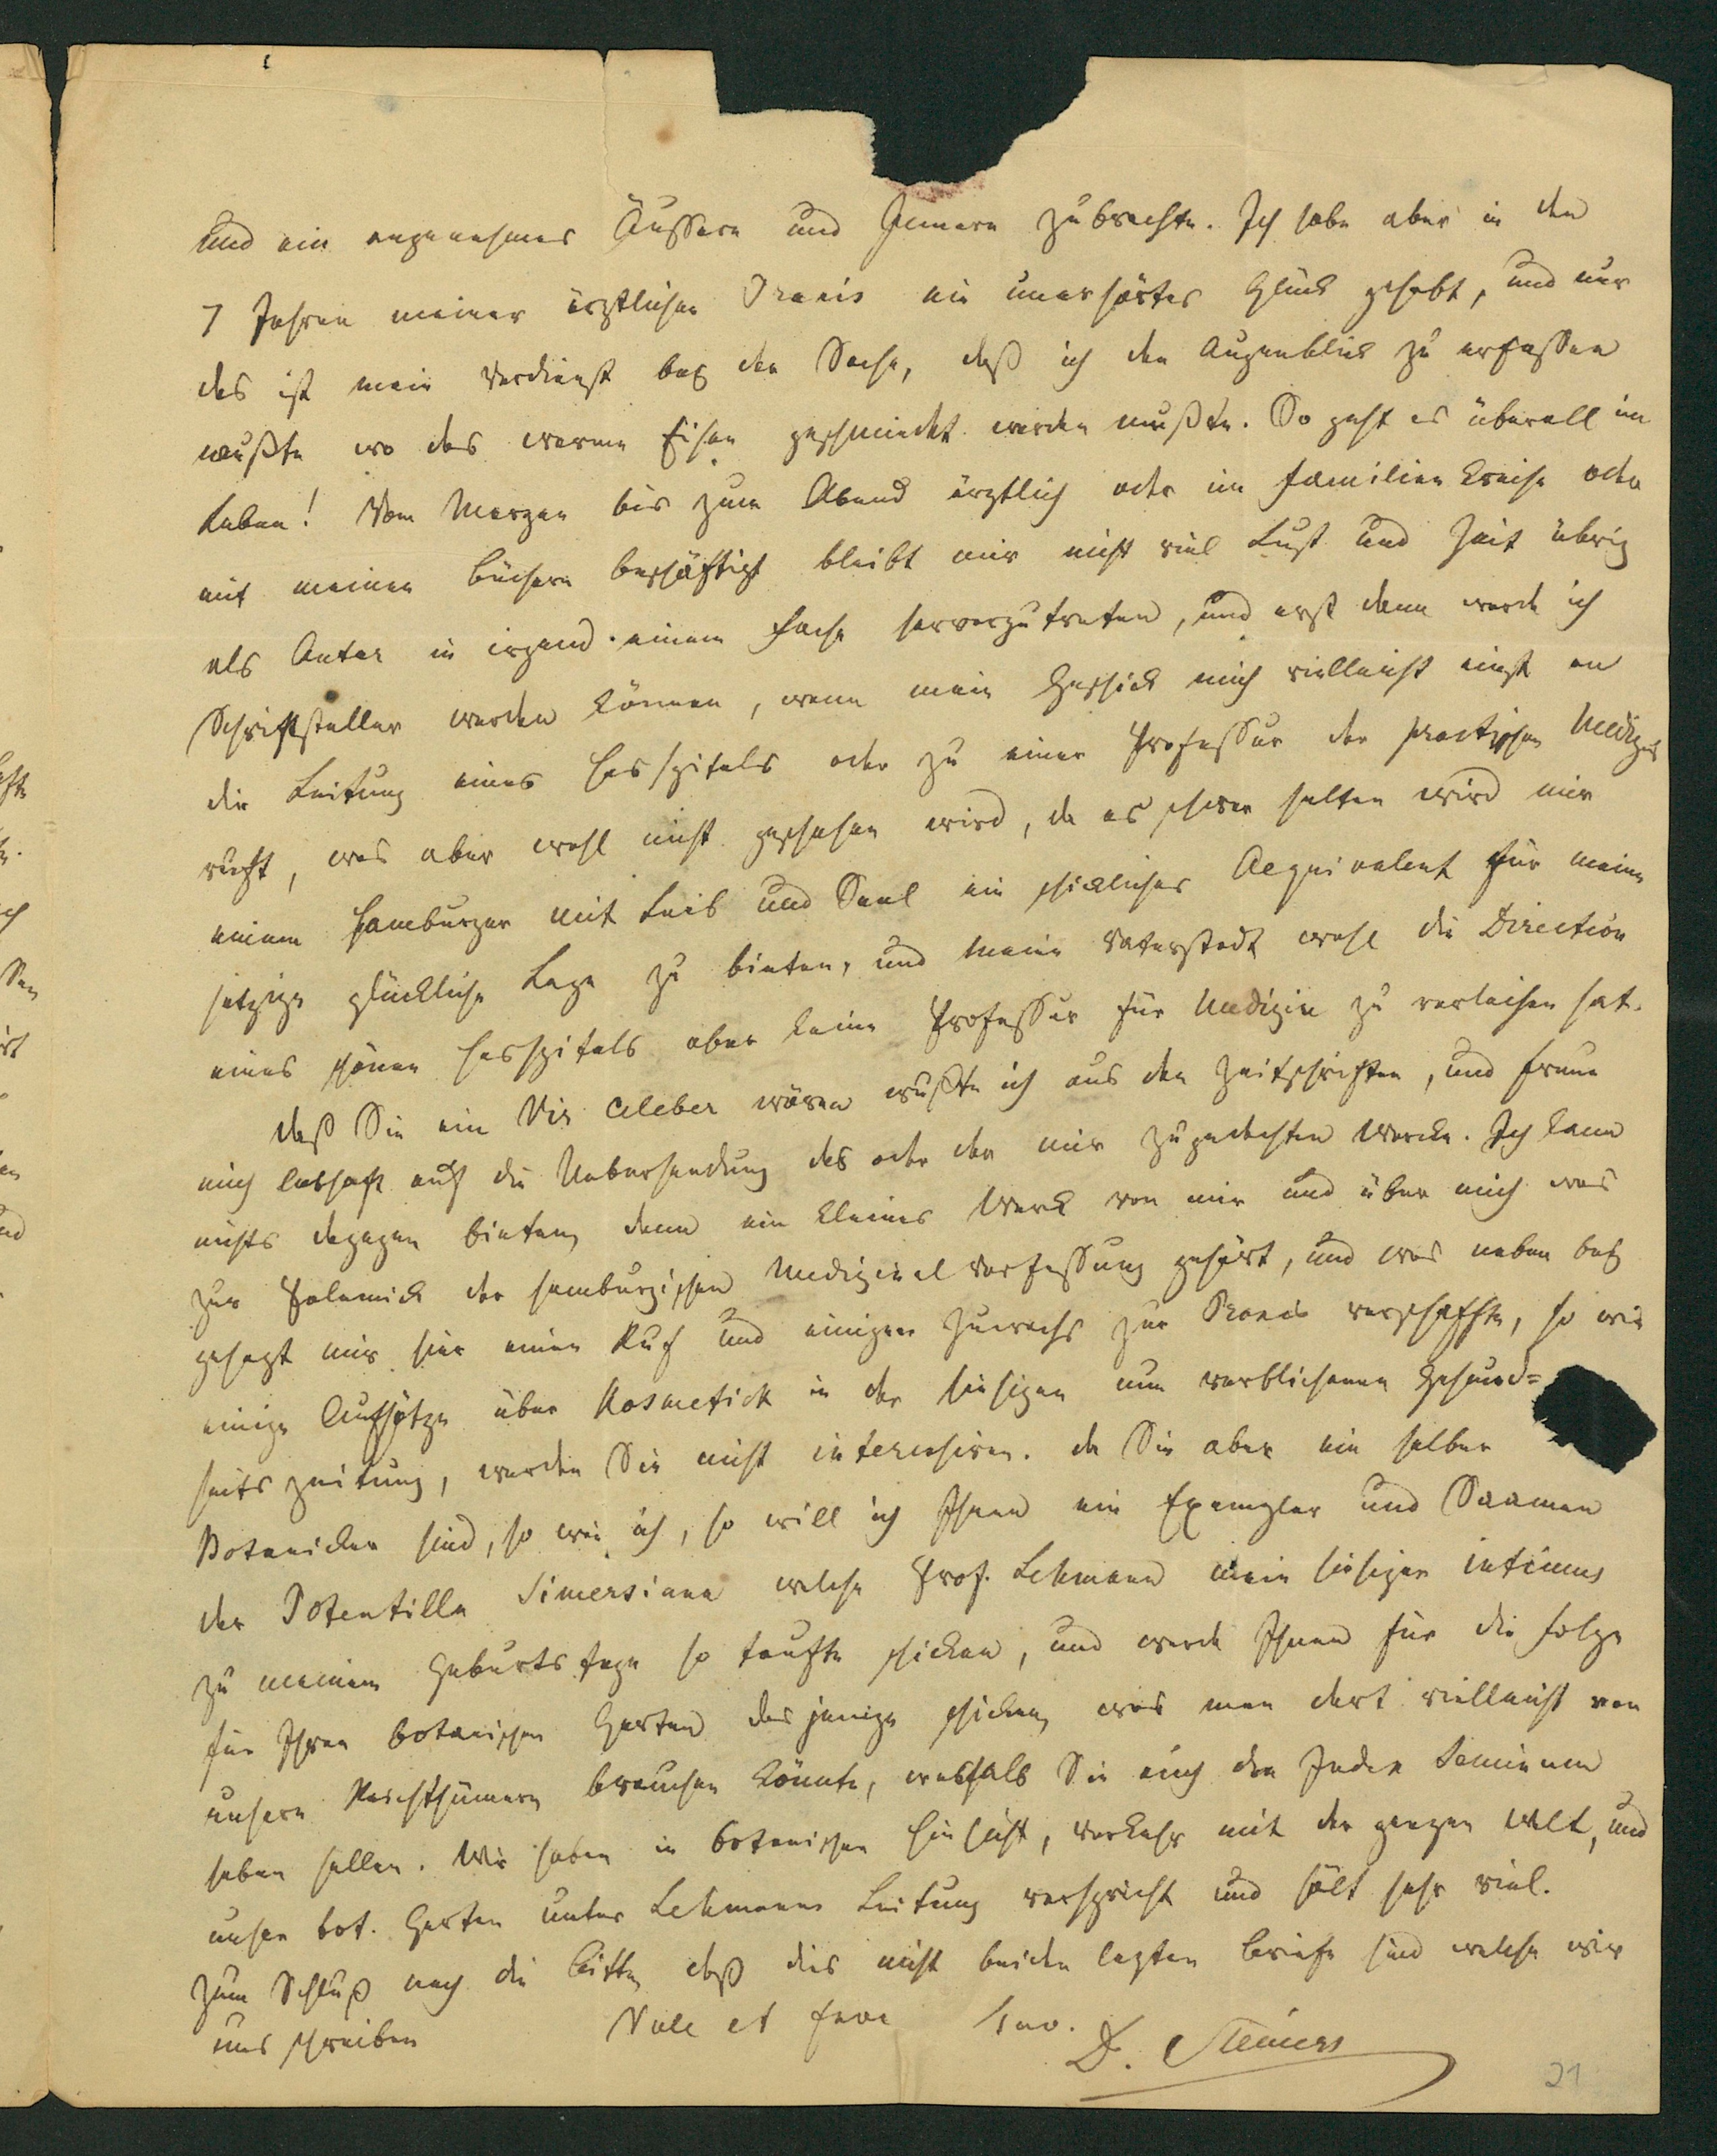 und ein angenehmes Äussern und Innern zubrachte. Ich habe aber in den
7 Jahren meiner ärztlichen Praxis ein unerhörtes Glück gehabt, und nur
das ist mein Verdienst bey der Sache, daß ich den Augenblick zu erfassen
wußte wo das warme Eisen geschmiedet werden mußte. So geht es überall im
Leben! Vom Morgen bis zum Abend ärztlich oder im Familien Kreise oder
mit meinen Büchern beschäftigt bleibt mir nicht viel Lust und Zeit übrig
als Autor in irgend einem Fache hervorzutreten, und erst dann werde ich
Schriftsteller werden können, wenn mein Geschick mich vielleicht einst an
die Leitung eines Hospitals oder zu einer Professur der practischen Medizin
ruft, was aber wohl nicht geschehen wird, da es schwer halten wird mir
einem Hamburger mit Leib und Seel ein schickliches Aequivalent für meine
jetzige glückliche Lage zu bieten, und meine Vaterstadt wohl die Direction
eines schönen Hospitals aber keine Professur für Medizin zu verleihen hat.
Daß Sie ein Vir celeber wären wußte ich aus den Zeitschriften, und freue
mich lebhaft auf die Uebersendung des oder der mir zugedachten Werke. Ich kann
nichts dagegen bieten, denn ein kleines Werk von mir und über mich was
zur Polemick der hamburgischen Medizinal Verfassung gehört, und was neben bey
gesagt mir hier einen Ruf und einigen Zuwachs zur Praxis verschaffte, so wie
einige Aufsätze über Kosmetick in der hiesigen nun verblichenen Gesund=
heits zeitung, werden Sie nicht interessiren. Da Sie aber ein halber
Botaniker sind, so wie ich, so will ich Ihnen ein Exemplar und Saamen
der Potentilla Simersiana welche Prof. Lehmann mein hiesiger intimus
zu meinem Geburtstage so taufte schicken, und werde Ihnen für die Folge
für Ihren botanischen Garten dasjenige schicken, was man dort vielleicht von
unsern Reichthümern brauchen könnte, weshalb Sie auch den Index Seminum
haben sollen. Wir haben in botanischer Hinsicht, Verkehr mit der ganzen Welt, und
unser bot. Garten unter Lehmanns Leitung verspricht und hält sehr viel.
Zum Schluß noch die Bitte, daß dies nicht beider letzten Briefe sind welche wir
uns schreiben Vale et fave
D. Siemers
21